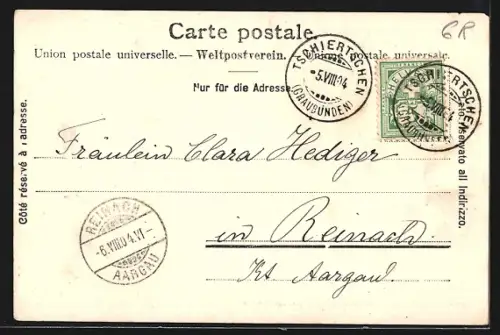 Carte postale.
6R
Union postale universelle. — Weltpostverein. — Unione postale universale.
Nur für die Adresse
TSCHIERTSCHEN
-5.VIII.04
(GRAUBÜNDEN)
HELVETIA
TSCHIERTSCHEN
Côté réservé à l'adresse.
riservato all Indirizzo.
Fräulein Clara Hediger
in Reinach
Kt. Aargau.
REINACH
-6.VIII.04.VI-
AARGAU